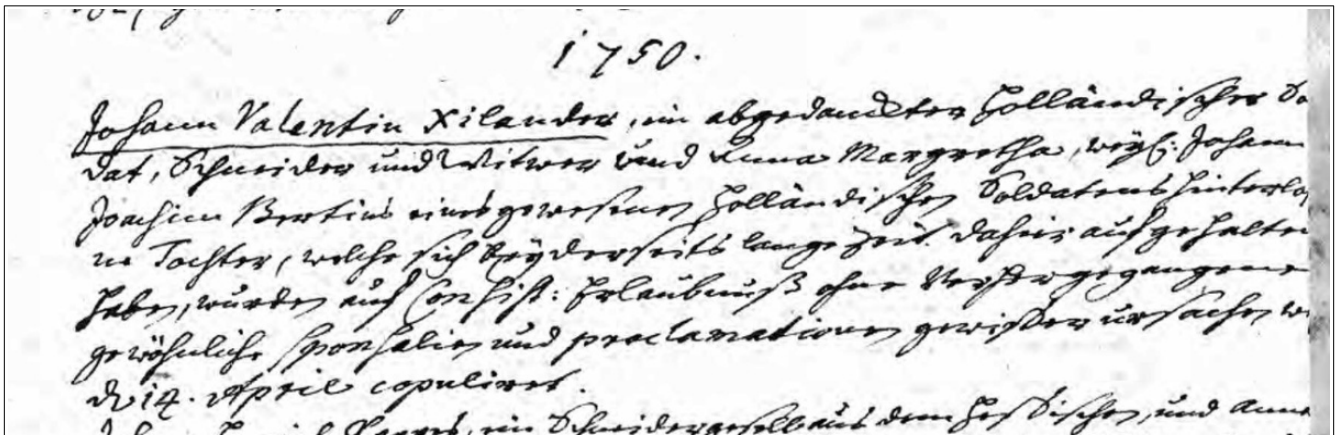 1750.
Johann Valentin Xilander, ein abgedanckter Holländischer So
dat, Schneider und Witwer und Anna Margretha, weyl: Johann
Joachim Bertins eines gewesenen Holländischen Soldatens hinterlaß
ne Tochter, welche sich beyderseits lange Zeit dahier aufgehalten
haben, wurden auf Consist: Erlaubnuß ohne vorhergegangene
gewöhnliche sponsalien und proclamationen gewißer ursachen
d 14. April copuliret.
ein Schneidergesell aus dem Hessischen, und Anna